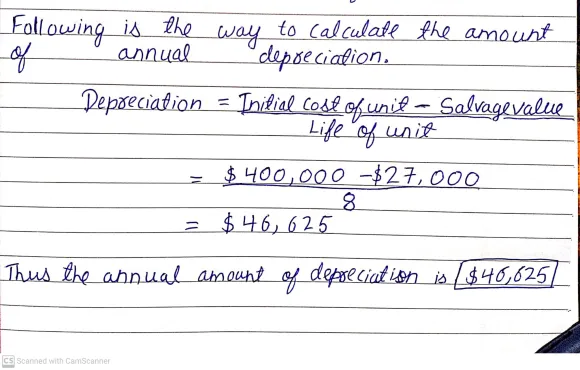 Following is the way to calculate the amount
of annual depreciation.
Depreciation = Initial cost of unit - Salvage value
Life of unit
= $400,000 - $27,000
8
= $46,625
Thus the annual amount of depreciation is $46,625
CS Scanned with CamScanner